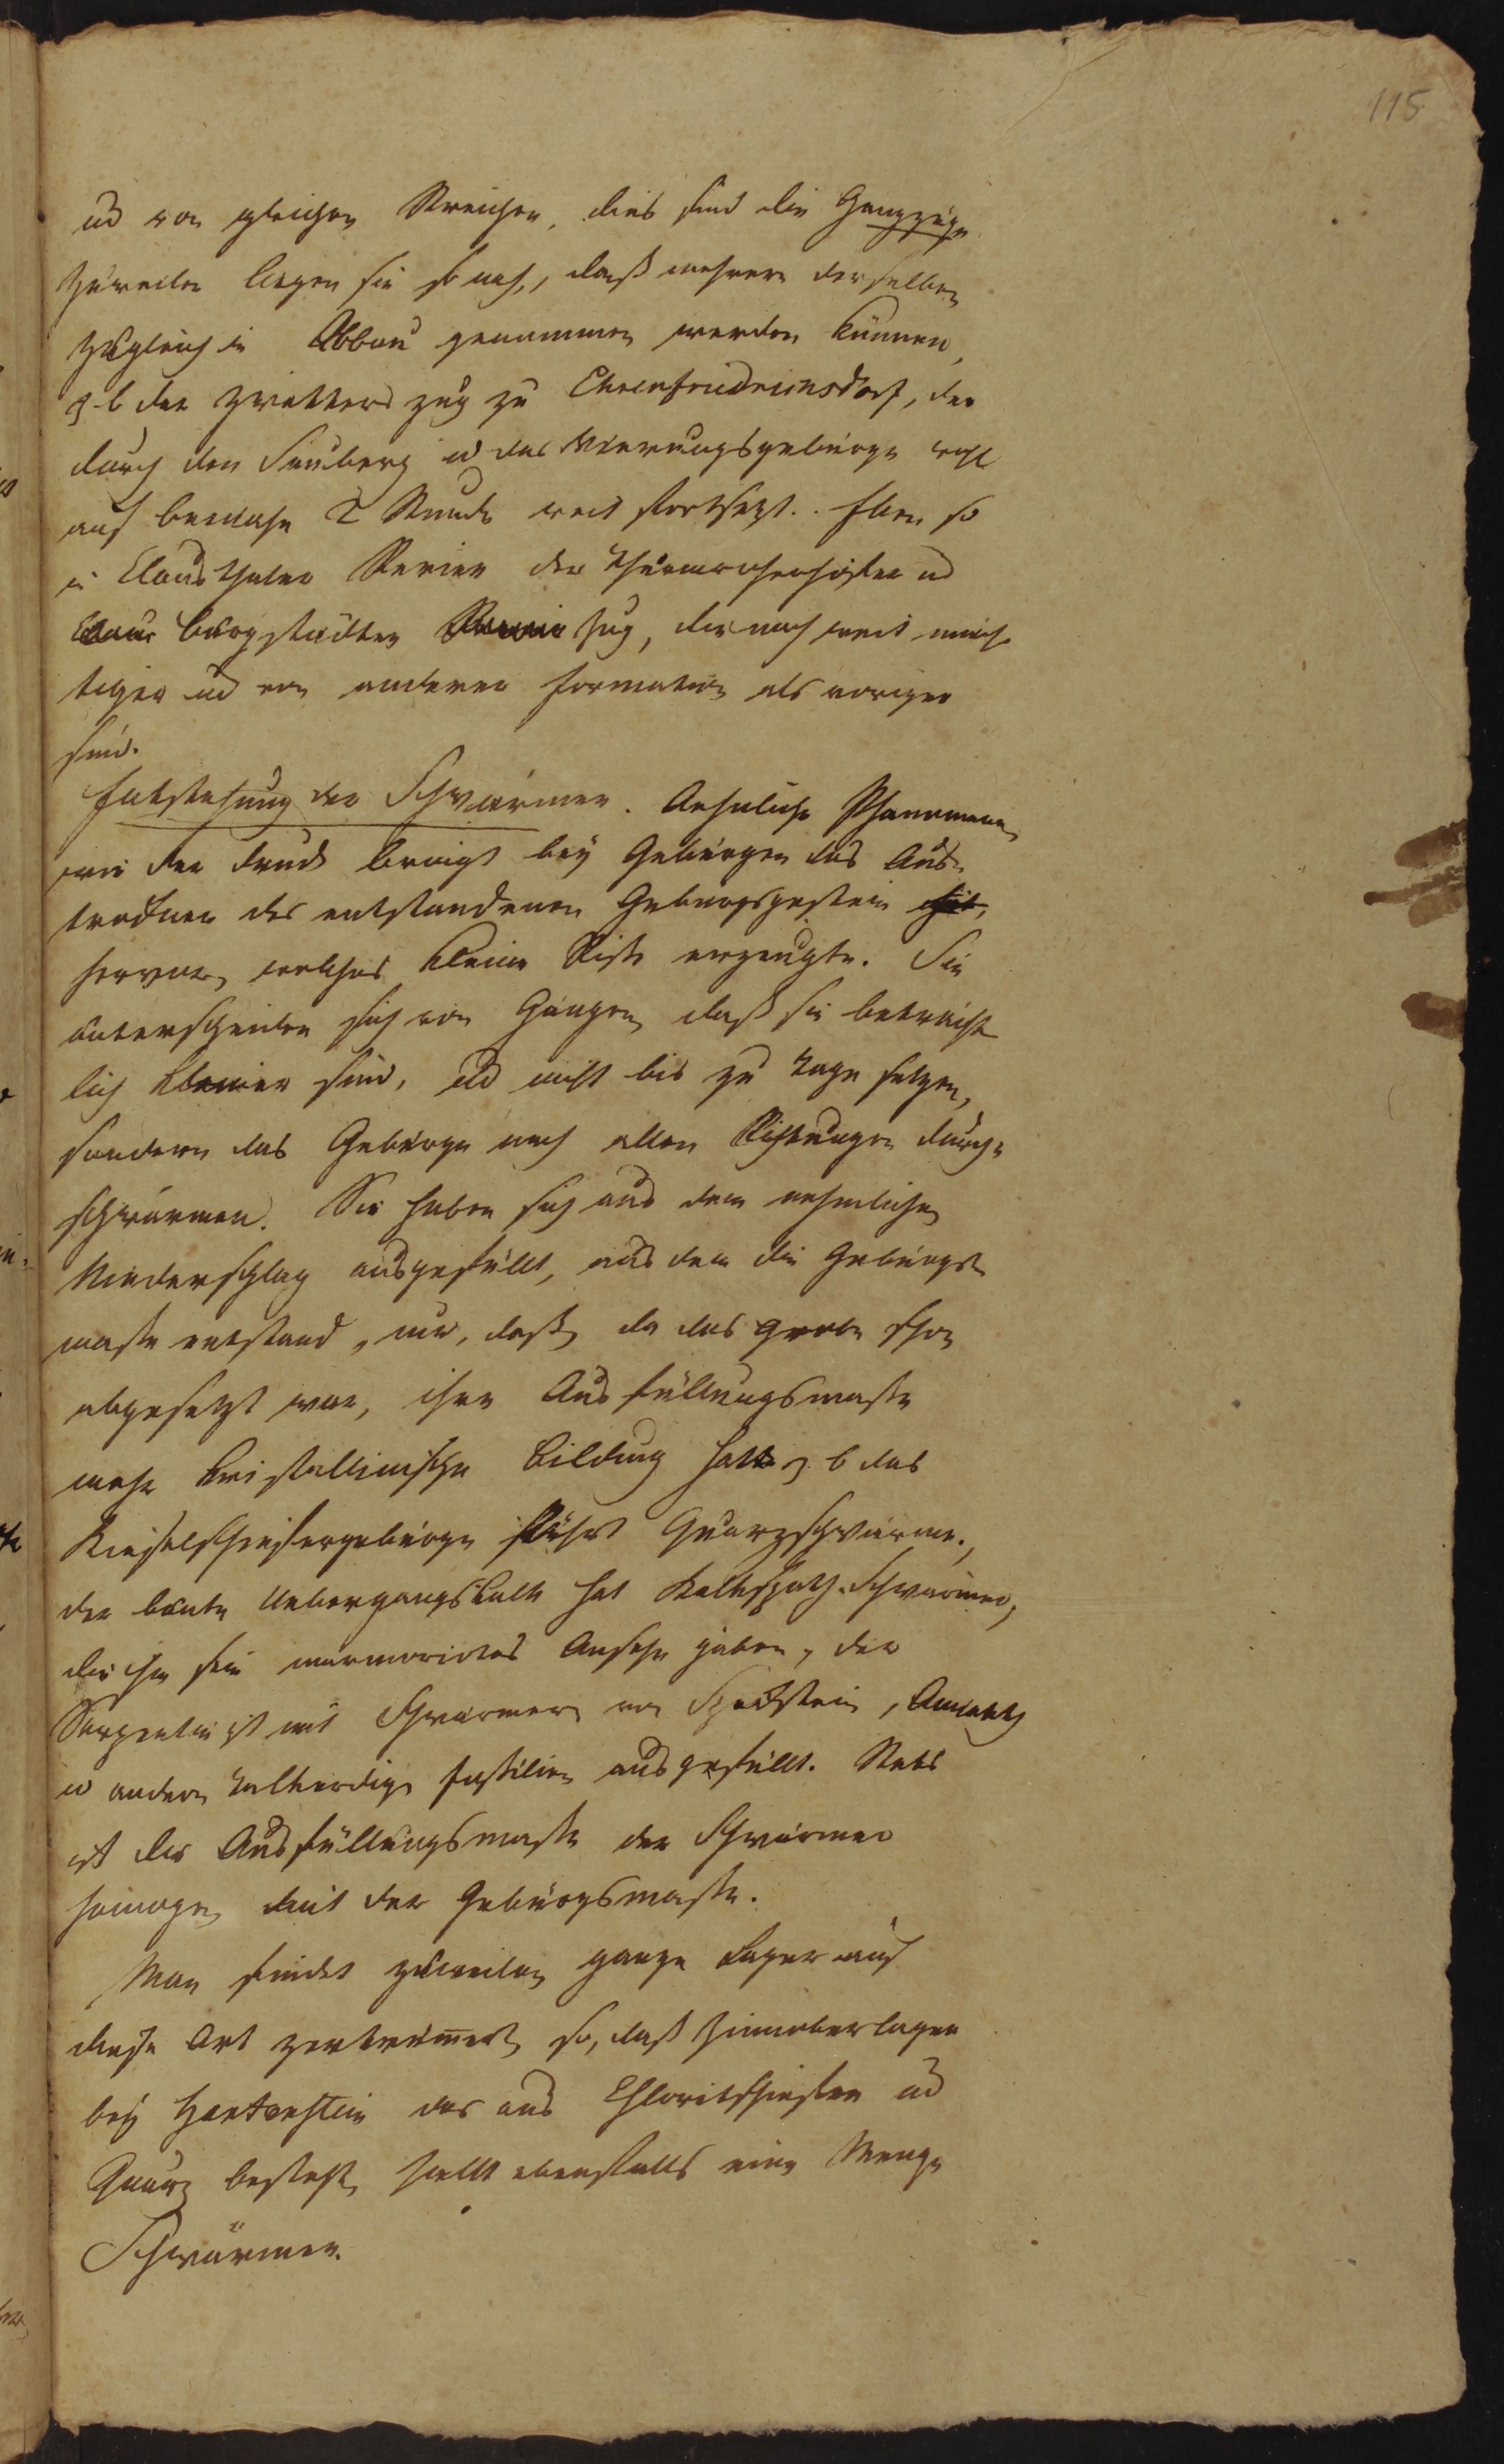 115
ud von gleichen Streichen, dies sind die Gangzüge
Zuweilen liegen sie so nah, daß mehrere derselben
zugleich in Abbau genommen werden können,
z. b der Zwitterzug zu Ehrenfriedrichsdorf, der
durch den Sauberg u das Vierungsgebürge wohl
auf beinahe 2 Stunde weit fortsezt. Eben so
in Clausthaler Revier der Thurmrosenhöfer ud
Burgstädter Zug, die noch weit mäch-
tiger ud von anderer Formation als voriger
sind.
Entstehung der Schwärmer. Aehnliche Phaenomene
wie der Druck bringt bey Gebürgen das Aus-
trocknen des entstandenen Gebürgsgestein
hervor, welches kleine Risse erzeugte. Sie
unterscheiden sich von Gängen, daß sie beträcht
lich kleiner sind, ud nicht bis zu Tage setzen,
sondern das Gebürge nach allen Richtungen durch-
schwärmen. Sie haben sich aus dem nehmlichen
Niederschlag ausgefüllt, aus dem die Gebürgs-
masse entstand, nur, daß, da das grobe schon
abgesetzt war, ihre Ausfüllungsmasse
mehr kristallinische Bildung hatte z b das
Kieselschiefergebürge führt Quarzschwärmer,
der bunte Uebergangskalk hat Kalkspath-Schwärmer,
die ihm sein marmorirtes Ansehn geben, der
Serpentin ist mit Schwärmern von Speckstein, Amianth
u andern talkerdige Fossilien ausgefüllt. Stets
ist die Ausfüllungsmasse der Schwärmer
homogen mit der Gebürgsmasse.
Man findet zuweilen ganze Lager auf
diese Art zertrümmert, so, das Zinnoberlager
bey Hartenstein das aus Chloritschiefer ud
Quarz besteht, hällt ebenfalls eine Menge
Schwärmer.